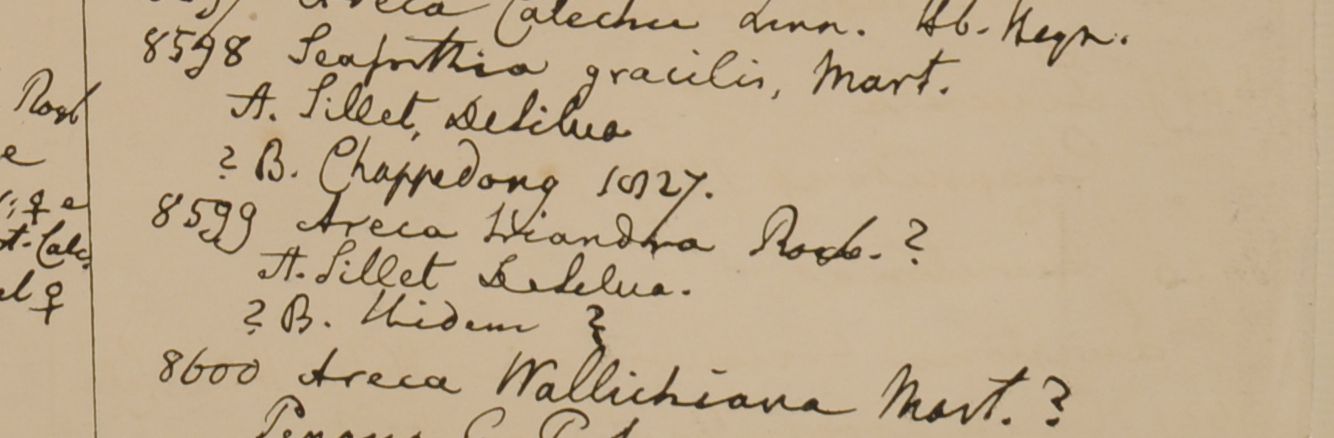 Roxb
e
; ♀ e
t. Calc.
el ♀
Areca Catechu Linn. Hb. Heyn.
8598 Seaforthia gracilis, Mart.
A. Sillet, DeSilva
? B. Chappedong 1827.
8599 Areca triandra Roxb. ?
A. Sillet DeSilva.
? B. Ibidem ?
8600 Areca Wallichiana Mart. ?
Penang